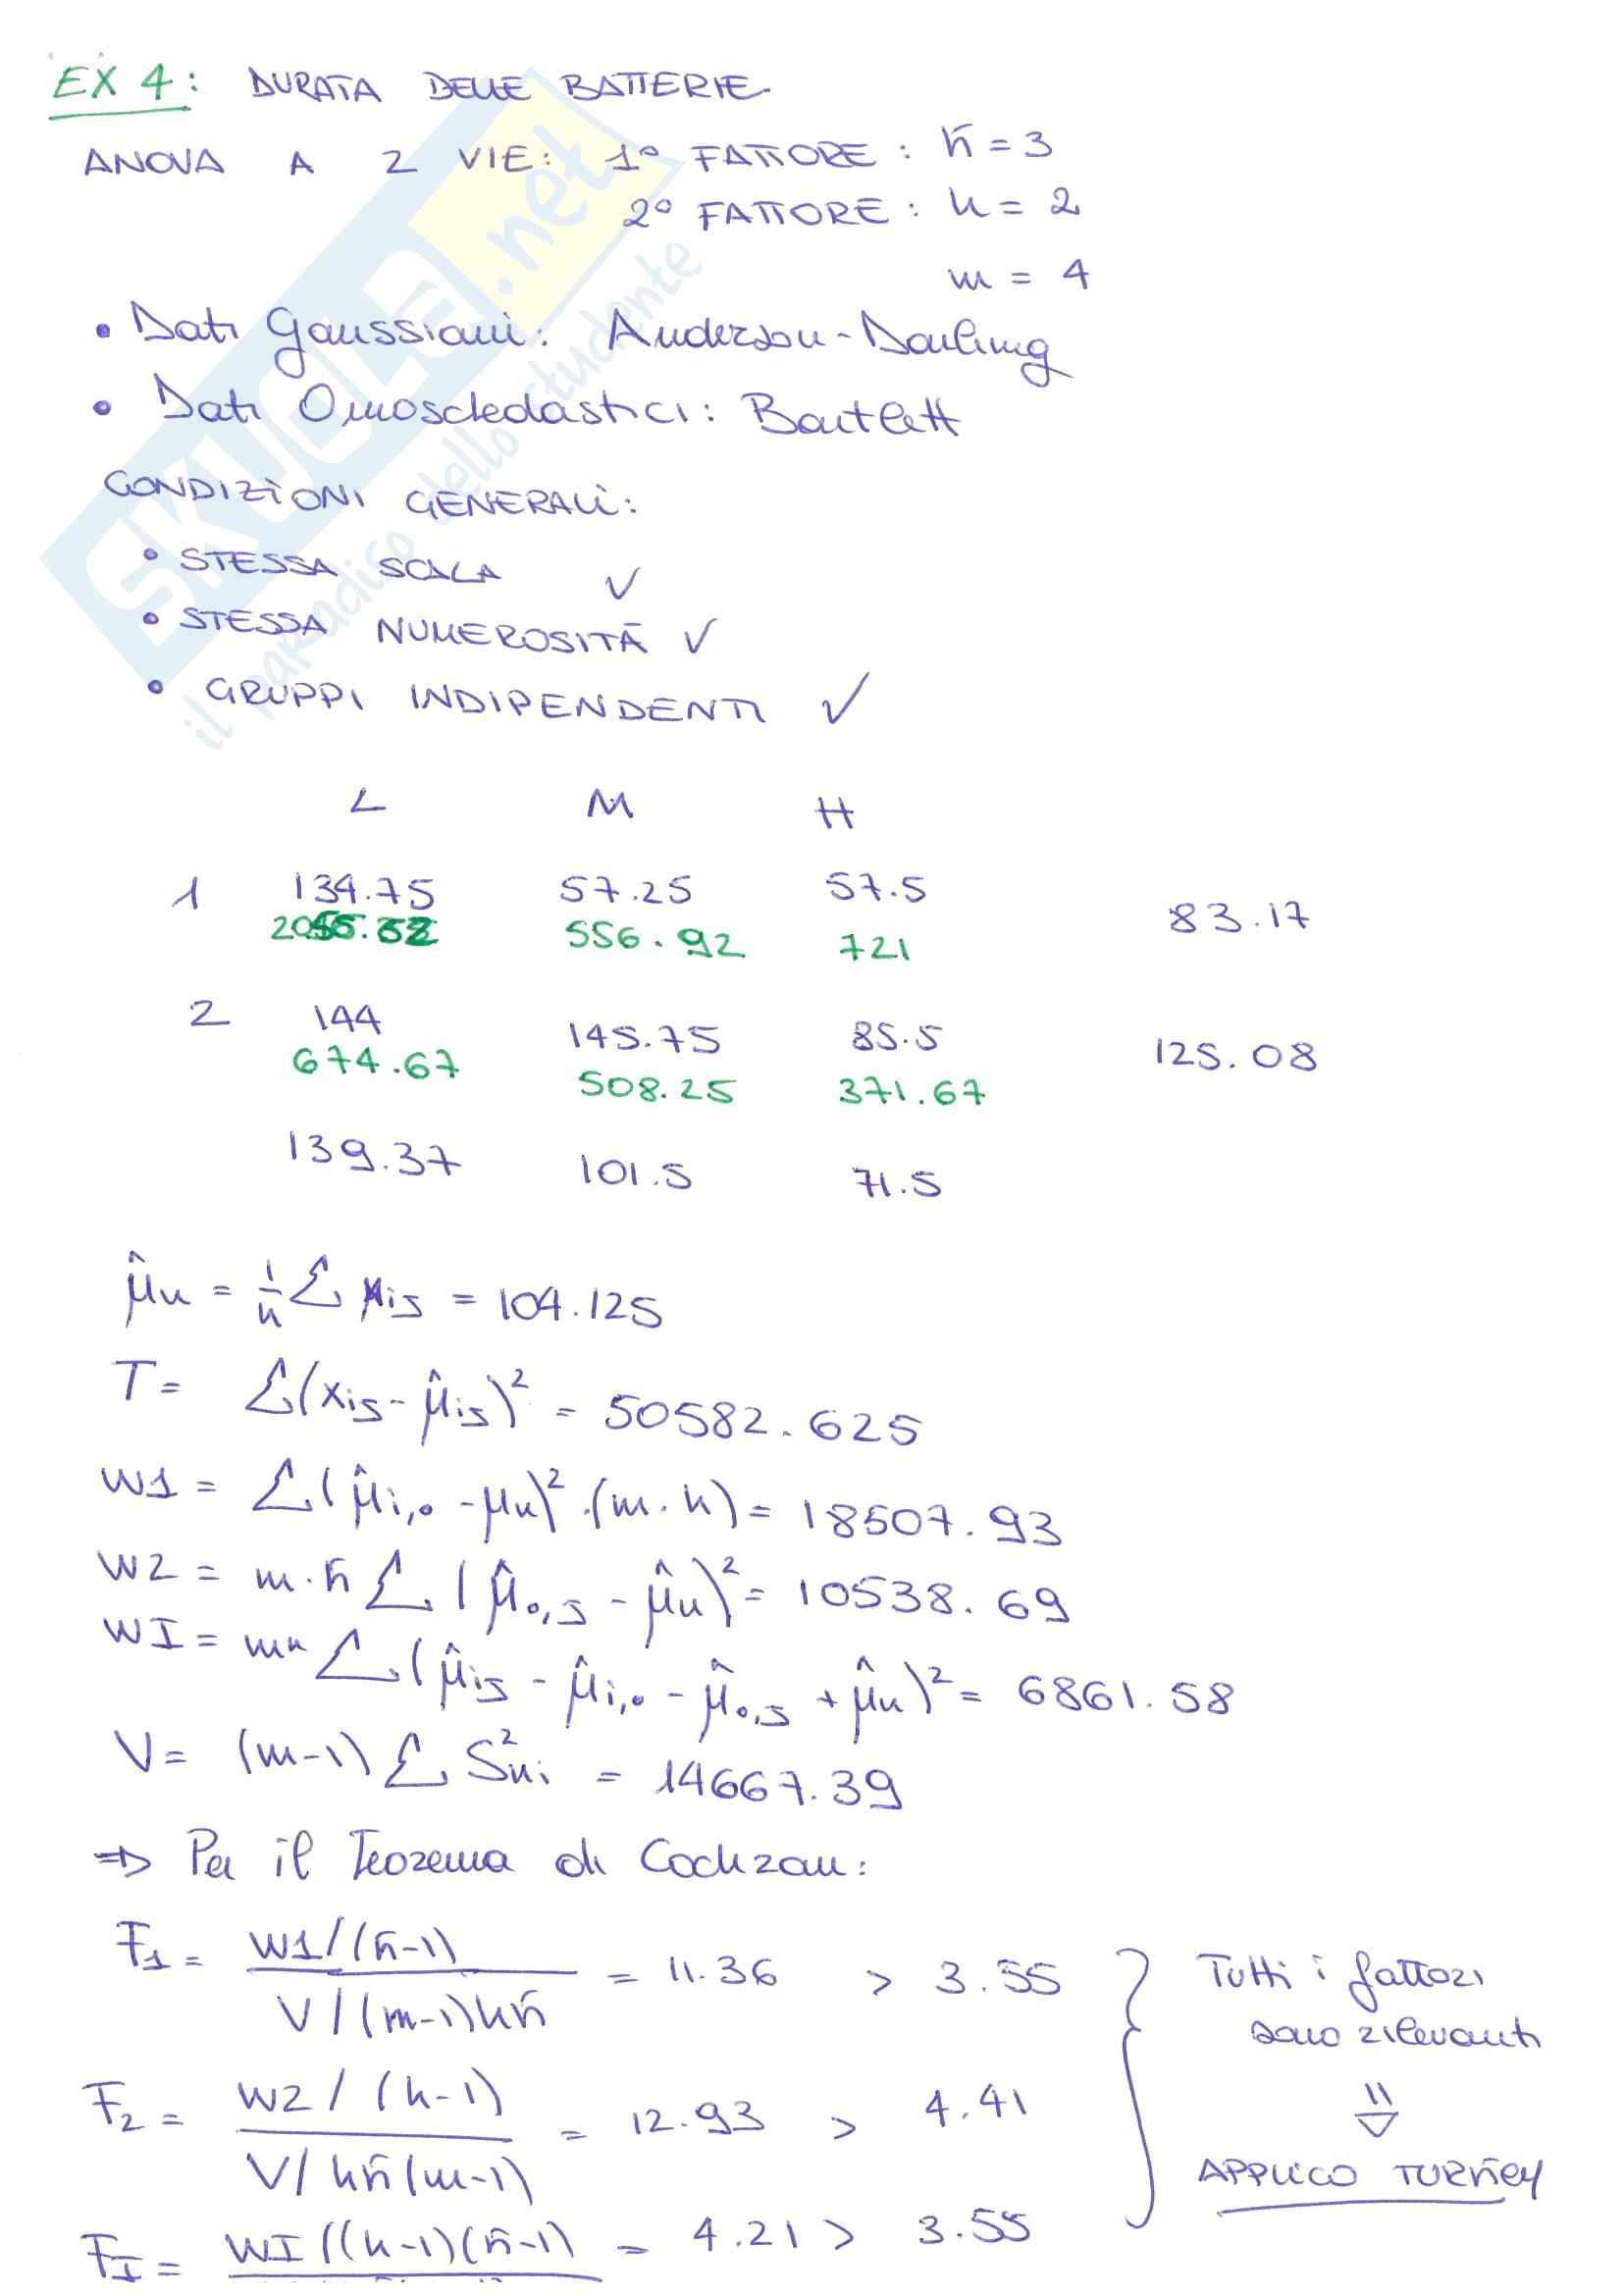 EX 4: DURATA DELLE BATTERIE.
ANOVA A 2 VIE: 1° FATTORE: k̄ = 3
2° FATTORE: h = 2
m = 4
• Dati Gaussiani: Anderson-Darling
• Dati Omoschedastici: Bartlett
CONDIZIONI GENERALI:
• STESSA SCALA ✓
• STESSA NUMEROSITÀ ✓
• GRUPPI INDIPENDENTI ✓
L M H
1 134.75 57.25 57.5 83.17
556.92 721
2 144 145.75 85.5 125.08
674.67 508.25 371.67
139.37 101.5 71.5
μ̂n = 1/n Σ xis = 104.125
T = Σ(xis - μ̂is)² = 50582.625
W1 = Σ(μ̂i,• - μn)² · (m · h) = 18507.93
W2 = m · k̄ Σ (μ̂•,s - μ̂n)² = 10538.69
WI = Σ(μ̂is - μ̂i,• - μ̂•,s + μ̂n)² = 6861.58
V = (m-1) Σ S²ni = 14667.39
⇒ Per il Teorema di Cochran:
F1 = W1/(k̄-1) / V/(m-1)hk̄ = 11.36 > 3.55
F2 = W2/(h-1) / V/hk̄(m-1) = 12.93 > 4.41
FI = WI/((h-1)(k̄-1) = 4.21 > 3.55
Tutti i fattori
sono rilevanti
⇓
APPLICO TURKEY
SKUOLA.net
il paradiso dello studente